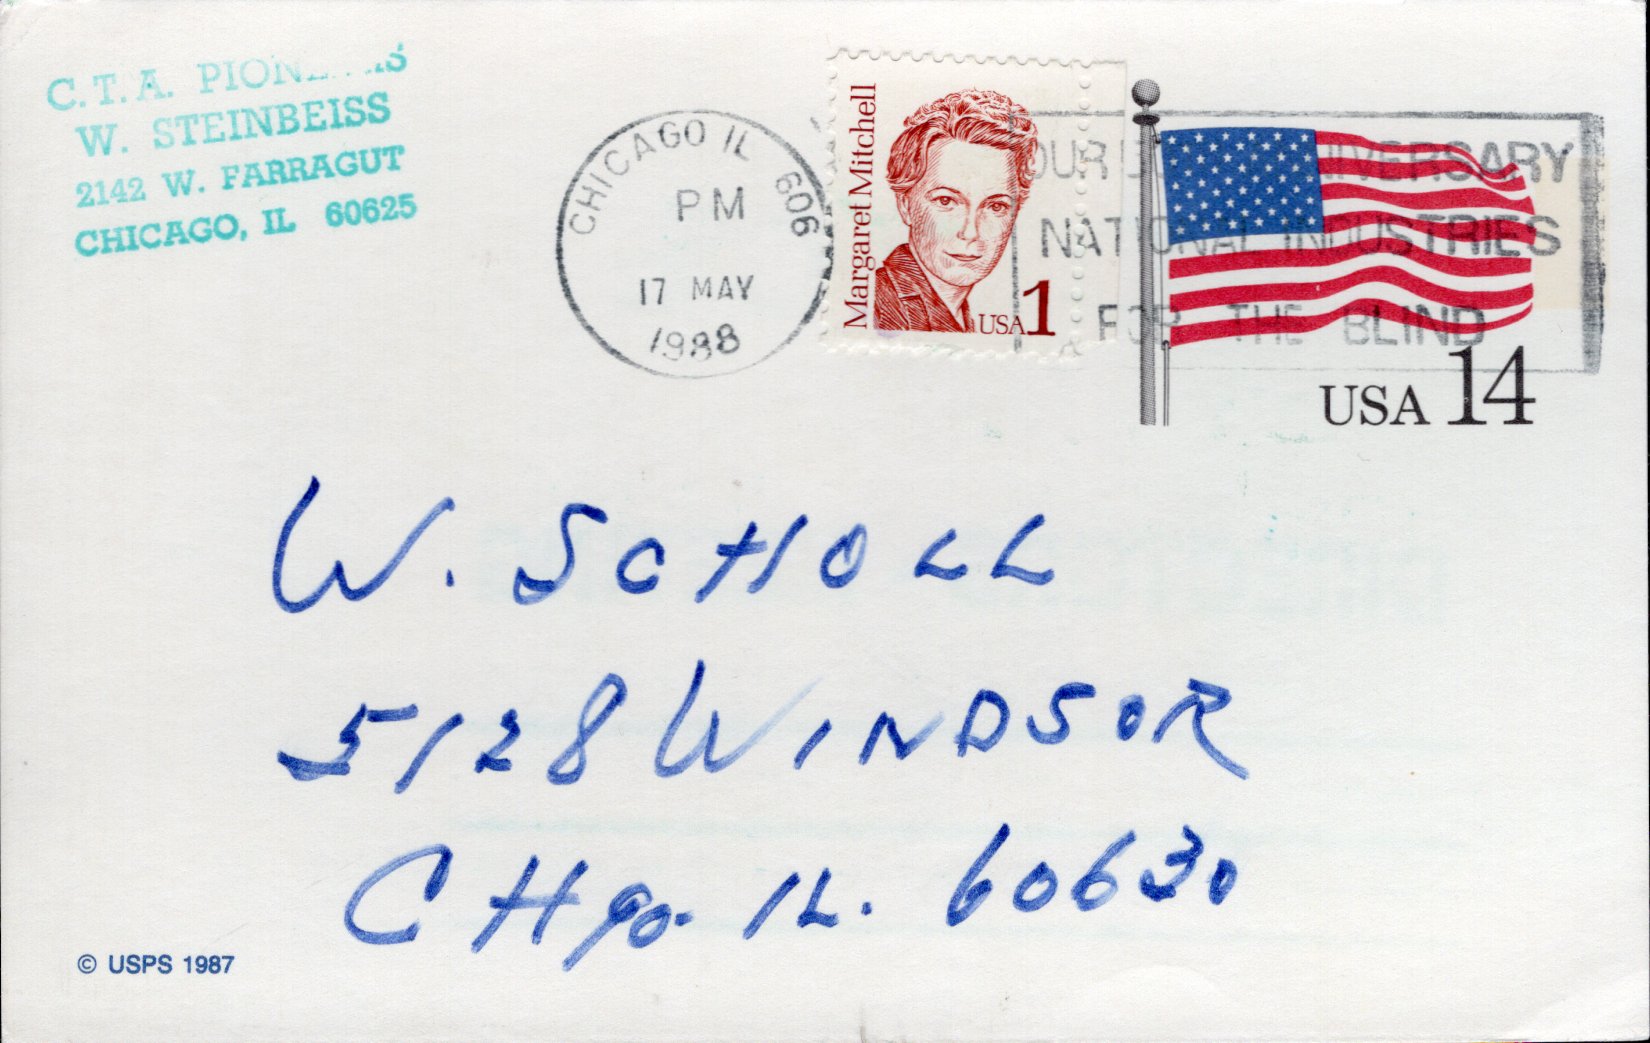 C.T.A.
W. STEINBEISS
2142 W. FARRAGUT
CHICAGO, IL 60625
CHICAGO IL 606
PM
17 MAY
1988
Margaret Mitchell
USA 1
OUR ANNIVERSARY
NATIONAL INDUSTRIES
FOR THE BLIND
USA 14
W. SCHOLL
5128 WINDSOR
CHgo. IL. 60630
© USPS 1987